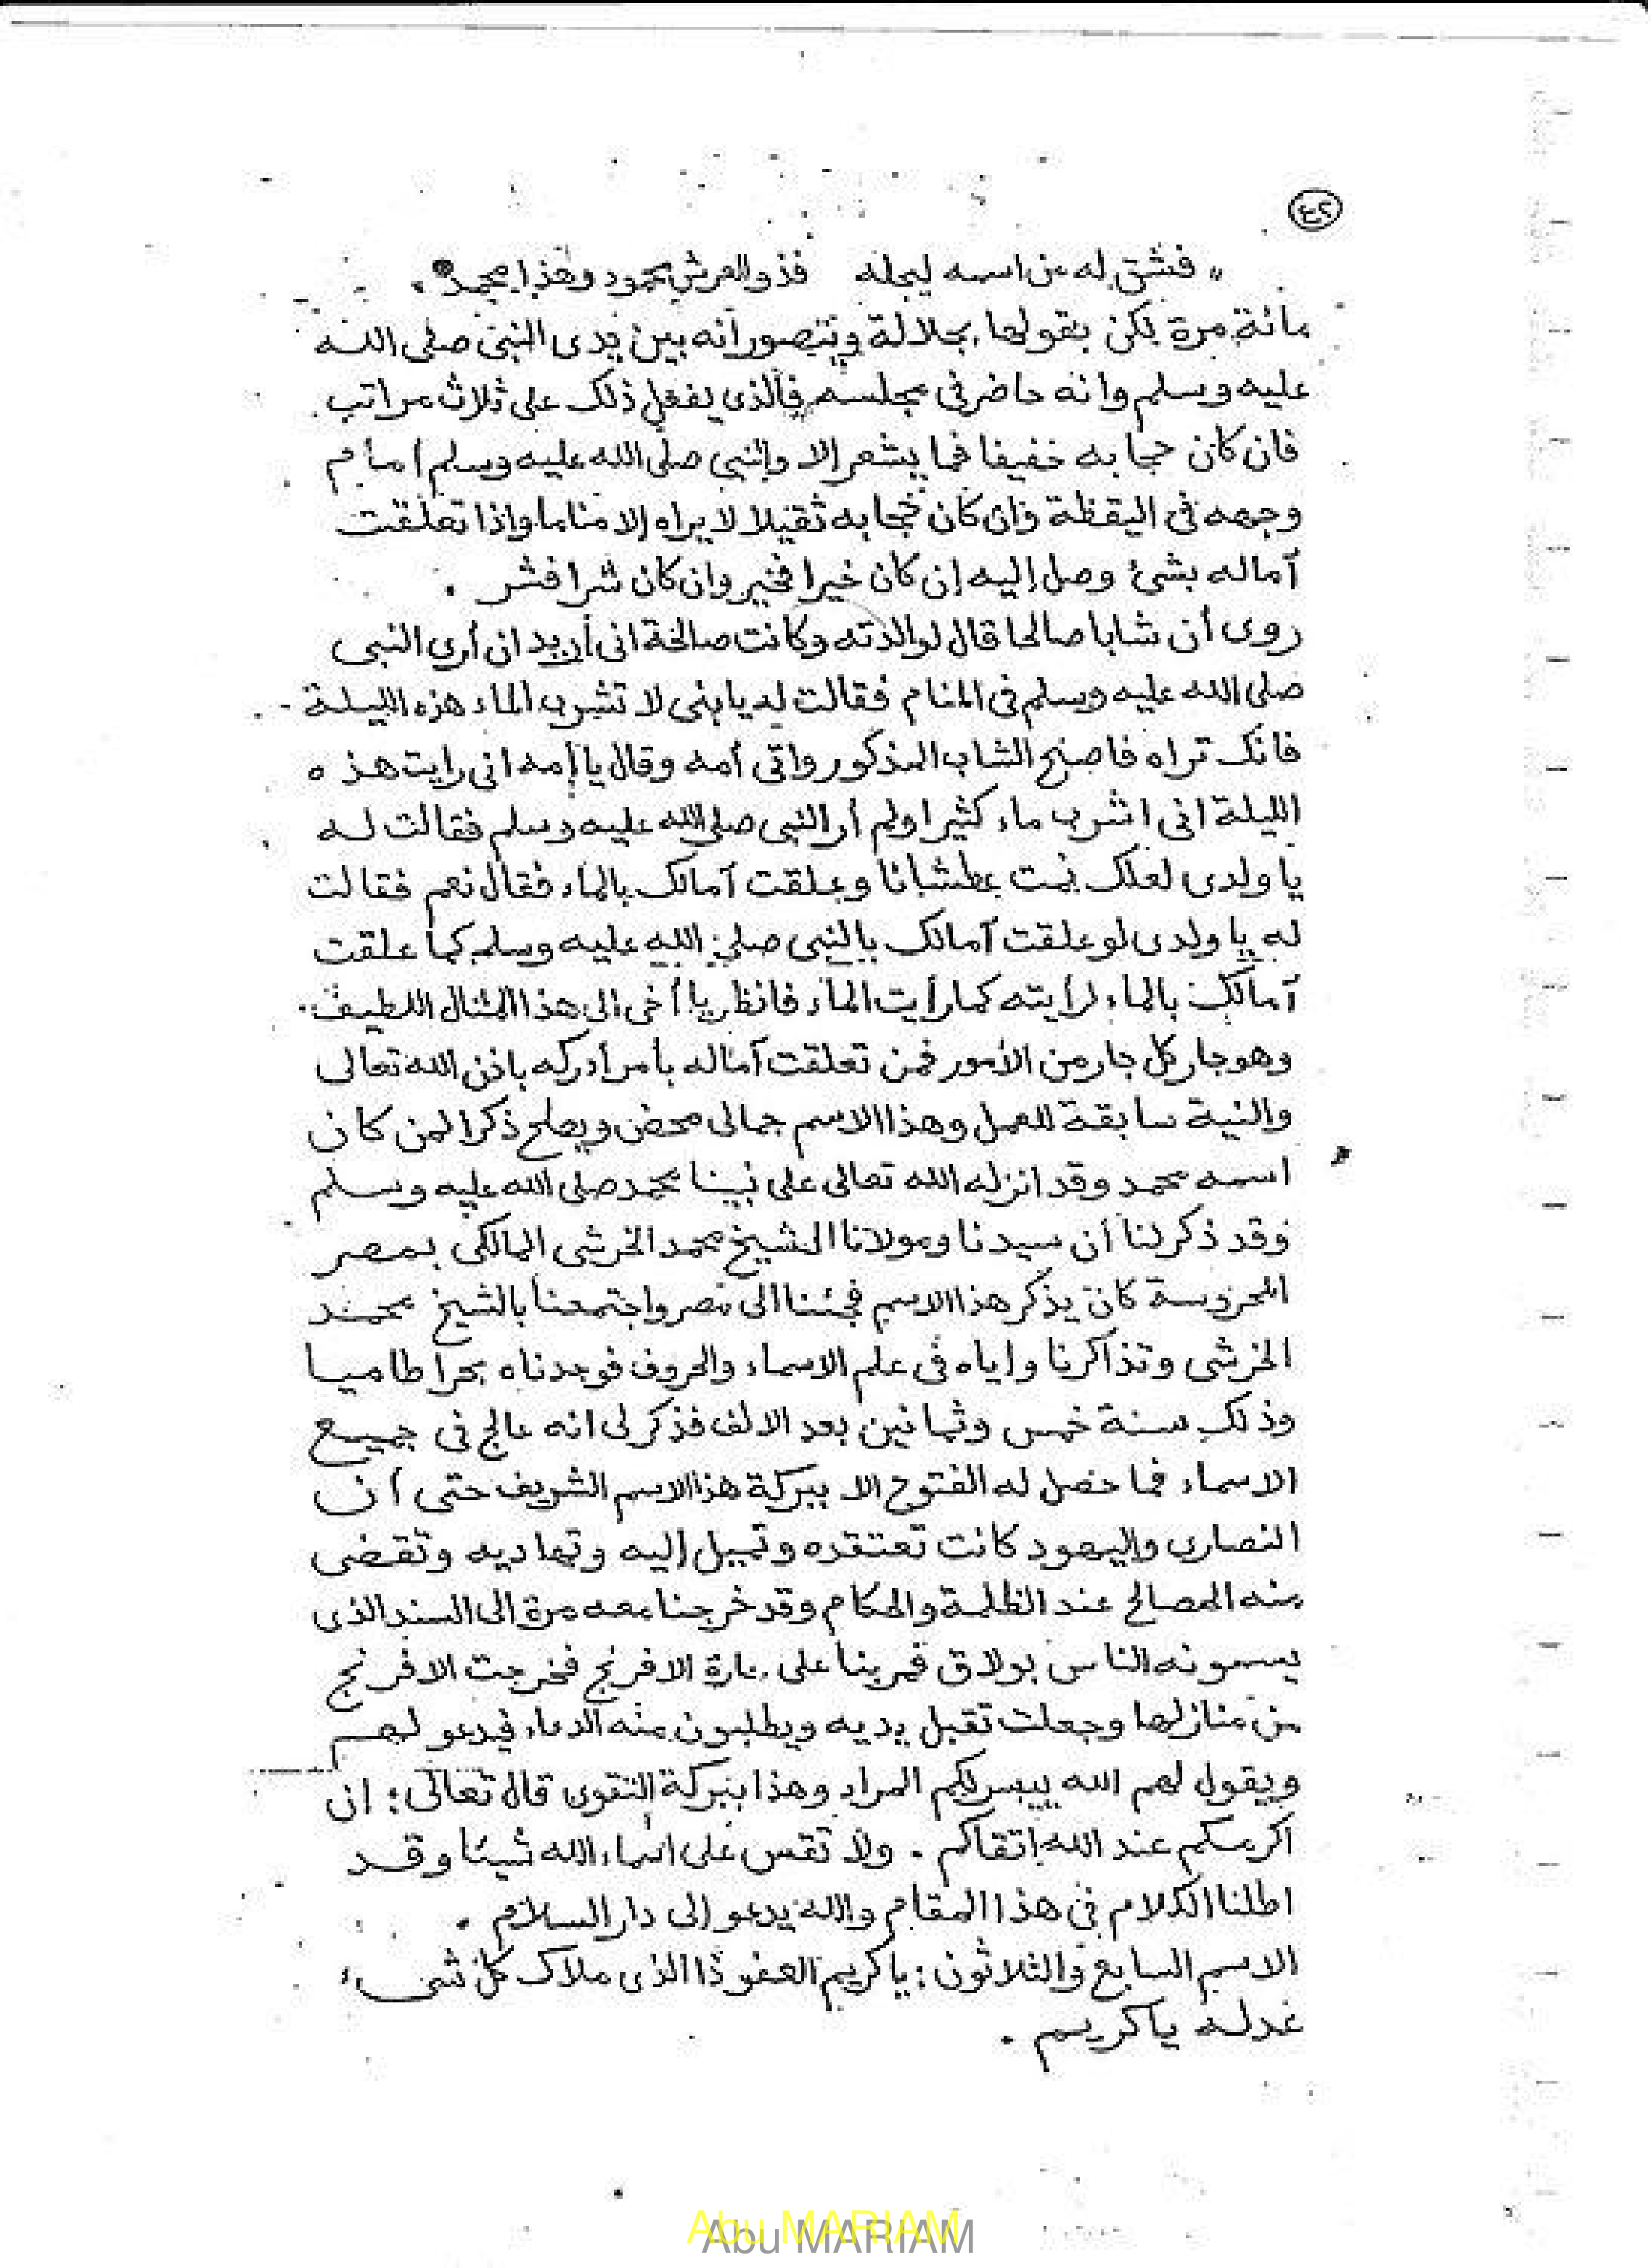 ٤٢
" فشق له من اسمه ليجله    فذو العرش محمود وهذا محمد " .
مائة مرة لكن بقولها بجلالة ويتصور انه بين يدى النبى صلى الله
عليه وسلم وانه حاضر فى مجلسه فالذى يفعل ذلك على ثلاث مراتب
فان كان حجابه خفيفا فما يشعر إلا والنبى صلى الله عليه وسلم أمام
وجهه فى اليقظة وان كان حجابه ثقيلا لا يراه إلا مناما واذا تعلقت
آماله بشئ وصل إليه إن كان خيرا فخير وان كان شرا فشر .
روى أن شابا صالحا قال لوالدته وكانت صالحة انى أريد ان أرى النبى
صلى الله عليه وسلم فى المنام فقالت له يا بنى لا تشرب الماء هذه الليلة
فانك تراه فاصبح الشاب المذكور واتى أمه وقال يا أمه انى رايت هذه
الليلة انى اشرب ماء كثيرا ولم أر النبى صلى الله عليه وسلم فقالت له
يا ولدى لعلك نمت عطشانا وعلقت آمالك بالماء فقال نعم فقالت
له يا ولدى لو علقت آمالك بالنبى صلى الله عليه وسلم كما علقت
آمالك بالماء لرأيته كما رأيت الماء فانظر يا أخى الى هذا المثال اللطيف .
وهو جار كل جار من الأمور فمن تعلقت آماله بأمر أدركه باذن الله تعالى
والنية سابقة للعمل وهذا الاسم جمالى محض ويصلح ذكرا لمن كان
اسمه محمد وقد انزله الله تعالى على نبينا محمد صلى الله عليه وسلم
وقد ذكر لنا أن سيدنا ومولانا الشيخ محمد الخرشى المالكى بمصر
المحروسة كان يذكر هذا الاسم فجئنا الى مصر واجتمعنا بالشيخ محمد
الخرشى وتذاكرنا واياه فى علم الاسماء والحروف فوجدناه بحرا طاميا
وذلك سنة خمس وثمانين بعد الالف فذكر لى انه عالج فى جميع
الاسماء فما حصل له الفتوح الا ببركة هذا الاسم الشريف حتى أن
النصارى واليهود كانت تعتقده وتميل إليه وتهاديه وتقضى
منه المصالح عند الظلمة والحكام وقد خرجنا معه مرة الى السند الذى
يسمونه الناس بولاق فمرينا على حارة الافرنج فخرجت الافرنج
من منازلها وجعلت تقبل يديه ويطلبون منه الدعاء فيدعو لهم
ويقول لهم الله ييسر لكم المراد وهذا ببركة التقوى قال تعالى : إن
اكرمكم عند الله اتقاكم . ولا تقس على اسماء الله شيئا وقد
اطلنا الكلام فى هذا المقام والله يدعو إلى دار السلام .
الاسم السابع والثلاثون : يا كريم العفو ذا الذى ملاك كل شىء
عدله يا كريم .
Abu MARIAM